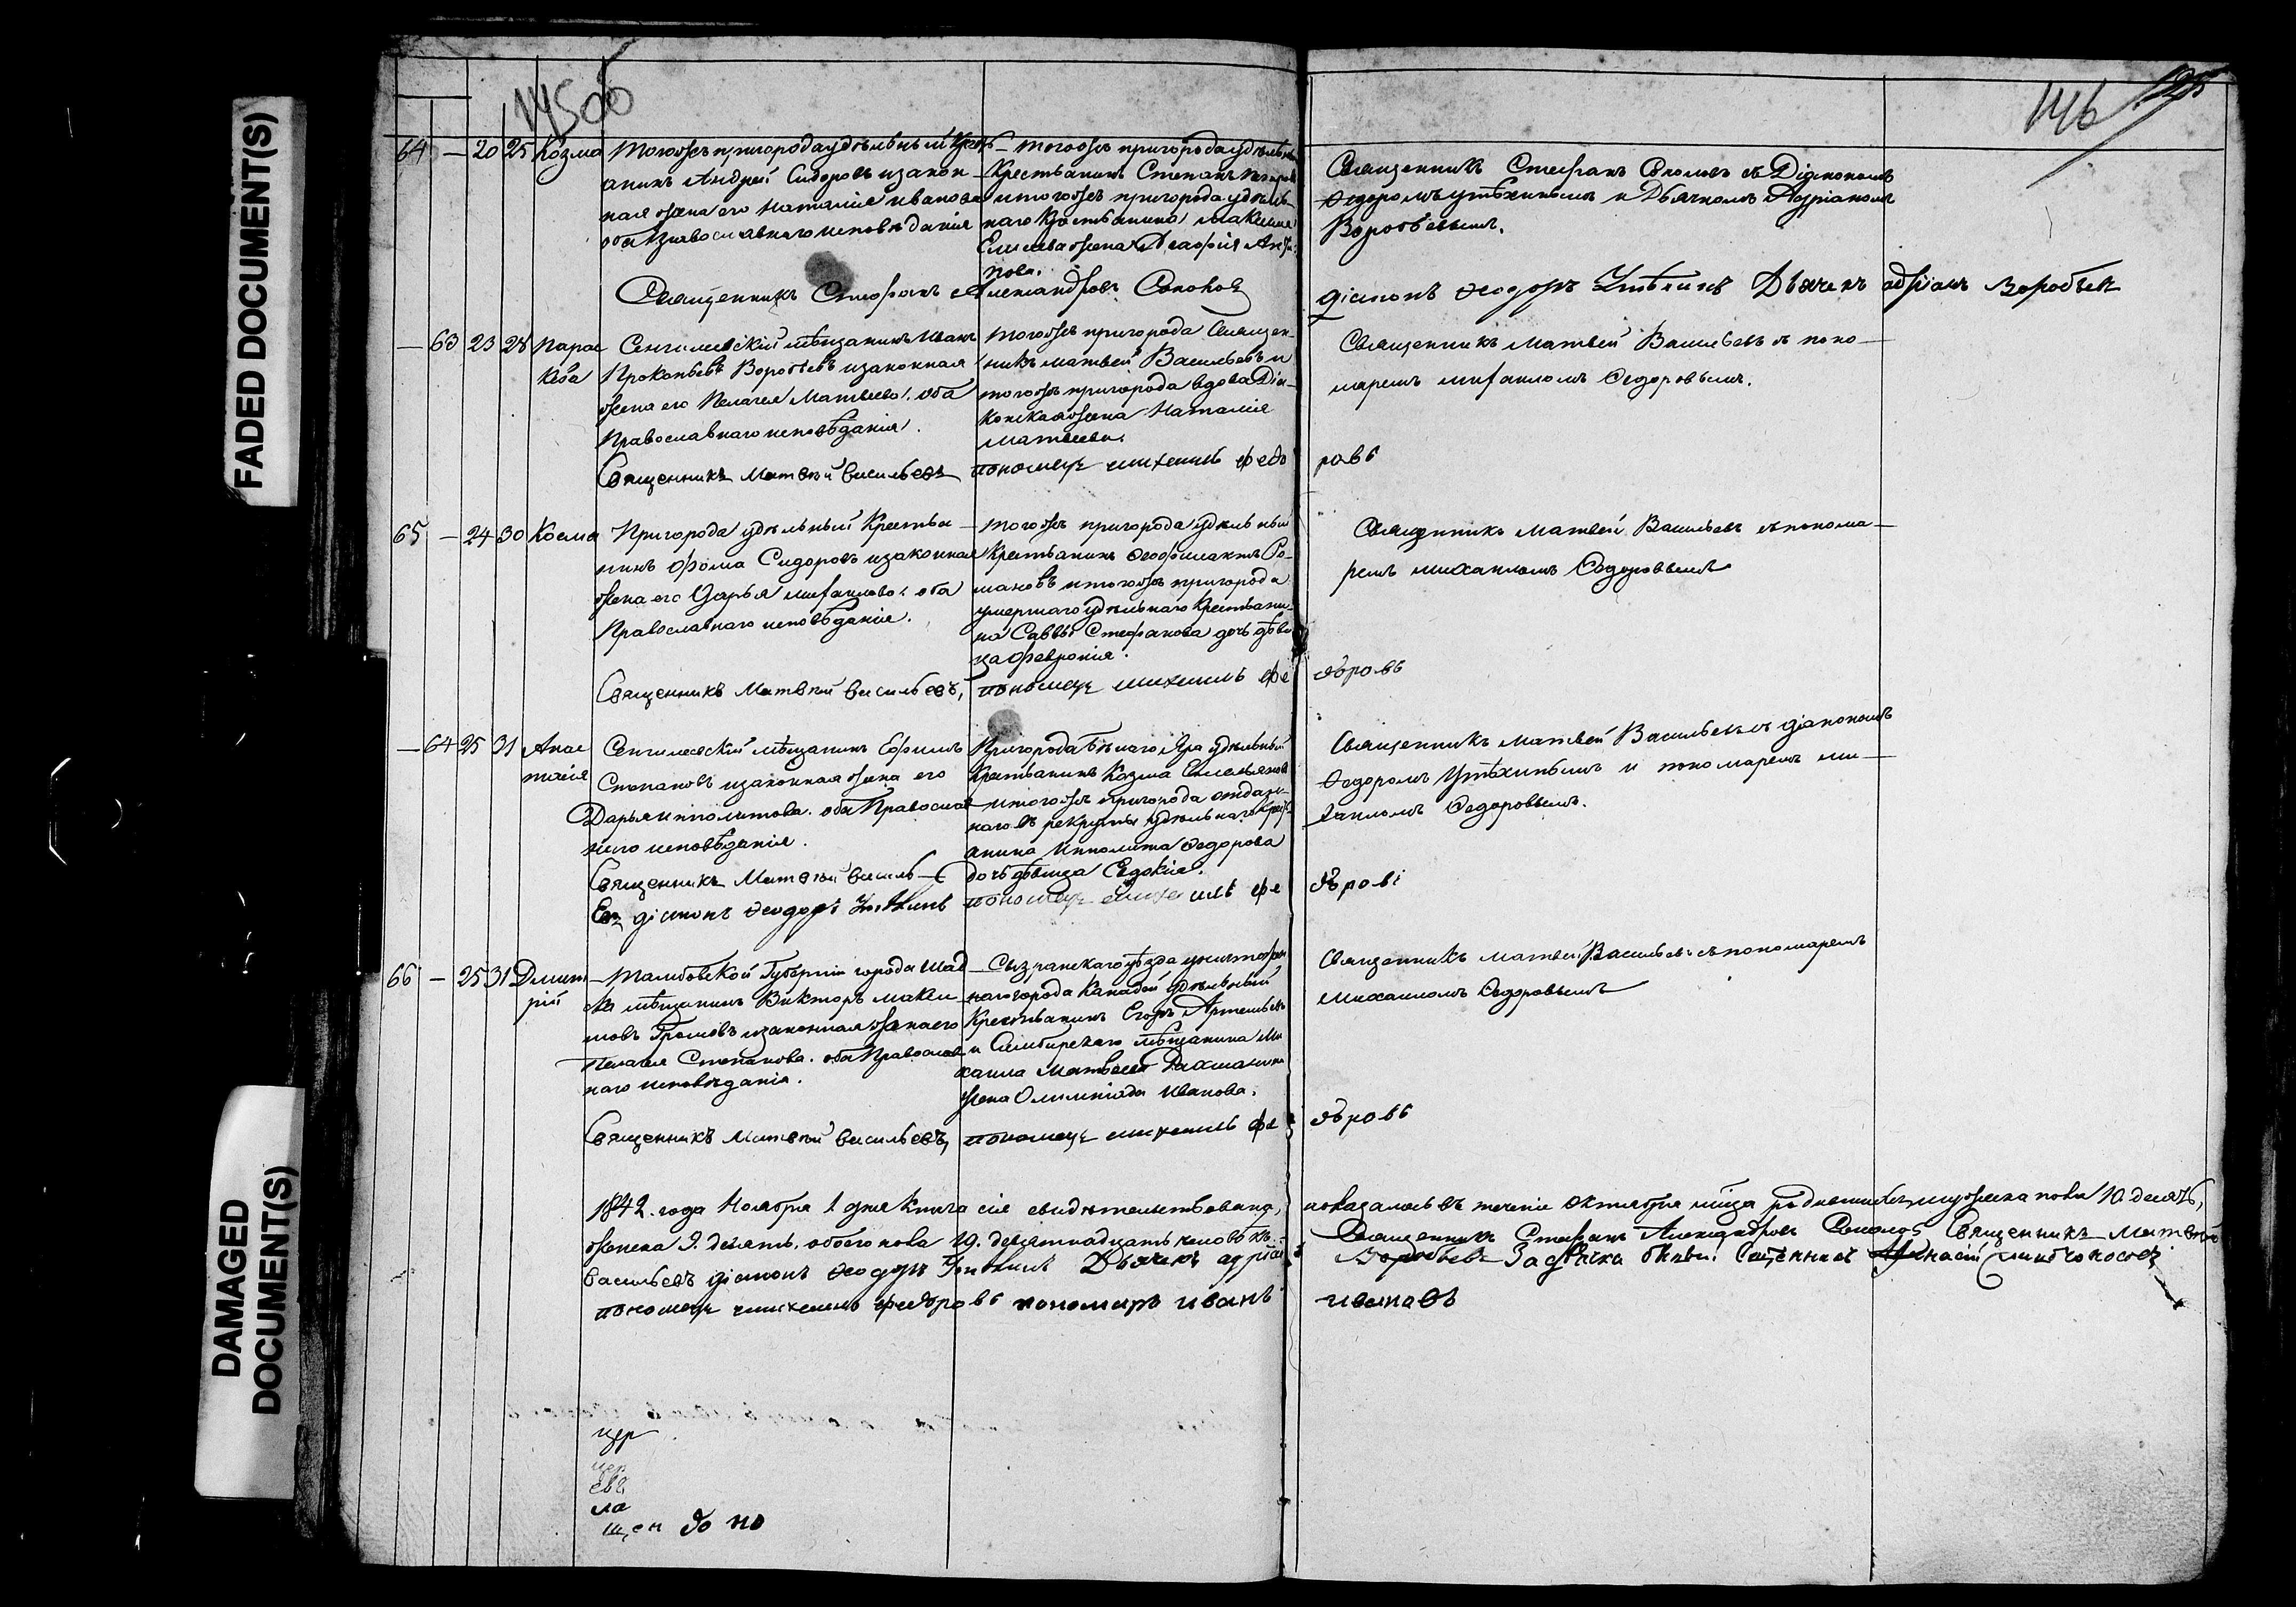 FADED DOCUMENT(S)
DAMAGED
DOCUMENT(S)
14500
146
64 — 20 25 Козма
Тогожъ пригорода удѣльный Крестьянинъ Андрей Сидоровъ и законная жена его Наталія Иванова
оба Православнаго исповѣданія
— Тогожъ пригорода удѣльный
Крестьянинъ Степанъ
и тогожъ пригорода удѣльнаго Крестьянина Максима
Елисеева жена Агафія
Священникъ Стефанъ Соколовъ съ Діакономъ
Ѳедоромъ Утѣхинымъ и Дьячкомъ Адріаномъ
Воробьевымъ.
Священникъ Стефанъ Александровъ Соколовъ
діаконъ Ѳеодоръ Утѣхинъ Дьячекъ адріанъ Воробьевъ
— 63 23 28 Параскева
Сенгилеевскій мѣщанинъ Иванъ
Прокопьевъ Воробьевъ и законная
жена его Пелагея Матвеева, оба
Православнаго исповѣданія.
Тогожъ пригорода Священникъ Матвей Васильевъ и
тогожъ пригорода вдова Діаконская жена Наталія
Матвеева
Священникъ Матвей Васильевъ съ пономаремъ Михаиломъ Ѳедоровымъ.
Священникъ Матвѣй Васильевъ пономарь михаилъ федоровъ
65 — 24 30 Косма
Пригорода удѣльный Крестьянинъ Фома Сидоровъ и законная
жена его Дарья Михаилова: оба
Православнаго исповѣданія.
— Тогожъ пригорода удѣльный
Крестьянинъ Ѳеофилактъ Романовъ и тогожъ пригорода
умершаго удѣльнаго Крестьянина Саввы Стефанова дочь дѣвица Февронія.
Священникъ Матвей Васильевъ съ пономаремъ Михаиломъ Ѳедоровымъ
Священникъ Матвѣй Васильевъ, пономарь михаилъ федоровъ
— 64 25 31 Анастасія
Сенгилеевскій мѣщанинъ Ефимъ
Степановъ и законная жена его
Дарья Ипполитова. оба Православнаго исповѣданія.
Пригорода Бѣлаго Яра удѣльный
Крестьянинъ Козма Емельяновъ
и тогожъ пригорода отданнаго въ рекруты удѣльнаго Крестьянина Ипполита Ѳедорова
дочь дѣвица Евдокія.
Священникъ Матвей Васильевъ съ діакономъ
Ѳедоромъ Утѣхинымъ и пономаремъ Михаиломъ Ѳедоровымъ.
Священникъ Матвѣй Васильевъ діаконъ Ѳеодоръ Утѣхинъ пономарь михаилъ федоровъ
66 — 25 31 Дмитрій
— Тамбовской Губерніи города Шацка мѣщанинъ Викторъ Максимовъ Громовъ и законная жена его
Пелагея Степанова. оба Православнаго исповѣданія.
— Сызранскаго уѣзда
города Канадей удѣльный
Крестьянинъ Егоръ Артемьевъ
и Симбирскаго мѣщанина Михаила Матвеева
жена Олимпіада Иванова.
Священникъ Матвей Васильевъ съ пономаремъ
Михаиломъ Ѳедоровымъ
Священникъ Матвѣй Васильевъ, пономарь михаилъ федоровъ
1842. года Ноября 1 дня Книга сія свидѣтельствована, показалось въ теченіи Октября мѣца родившихся, мужеска пола 10. десять,
женска 9. девять. обоего пола 19. девятнадцать человѣкъ. Священникъ Стефанъ Александровъ Соколовъ Священникъ Матвѣй
Васильевъ діаконъ Ѳеодоръ Утѣхинъ Дьячекъ адріанъ Воробьевъ
пономарь михаилъ федоровъ пономарь иванъ ивановъ
до по